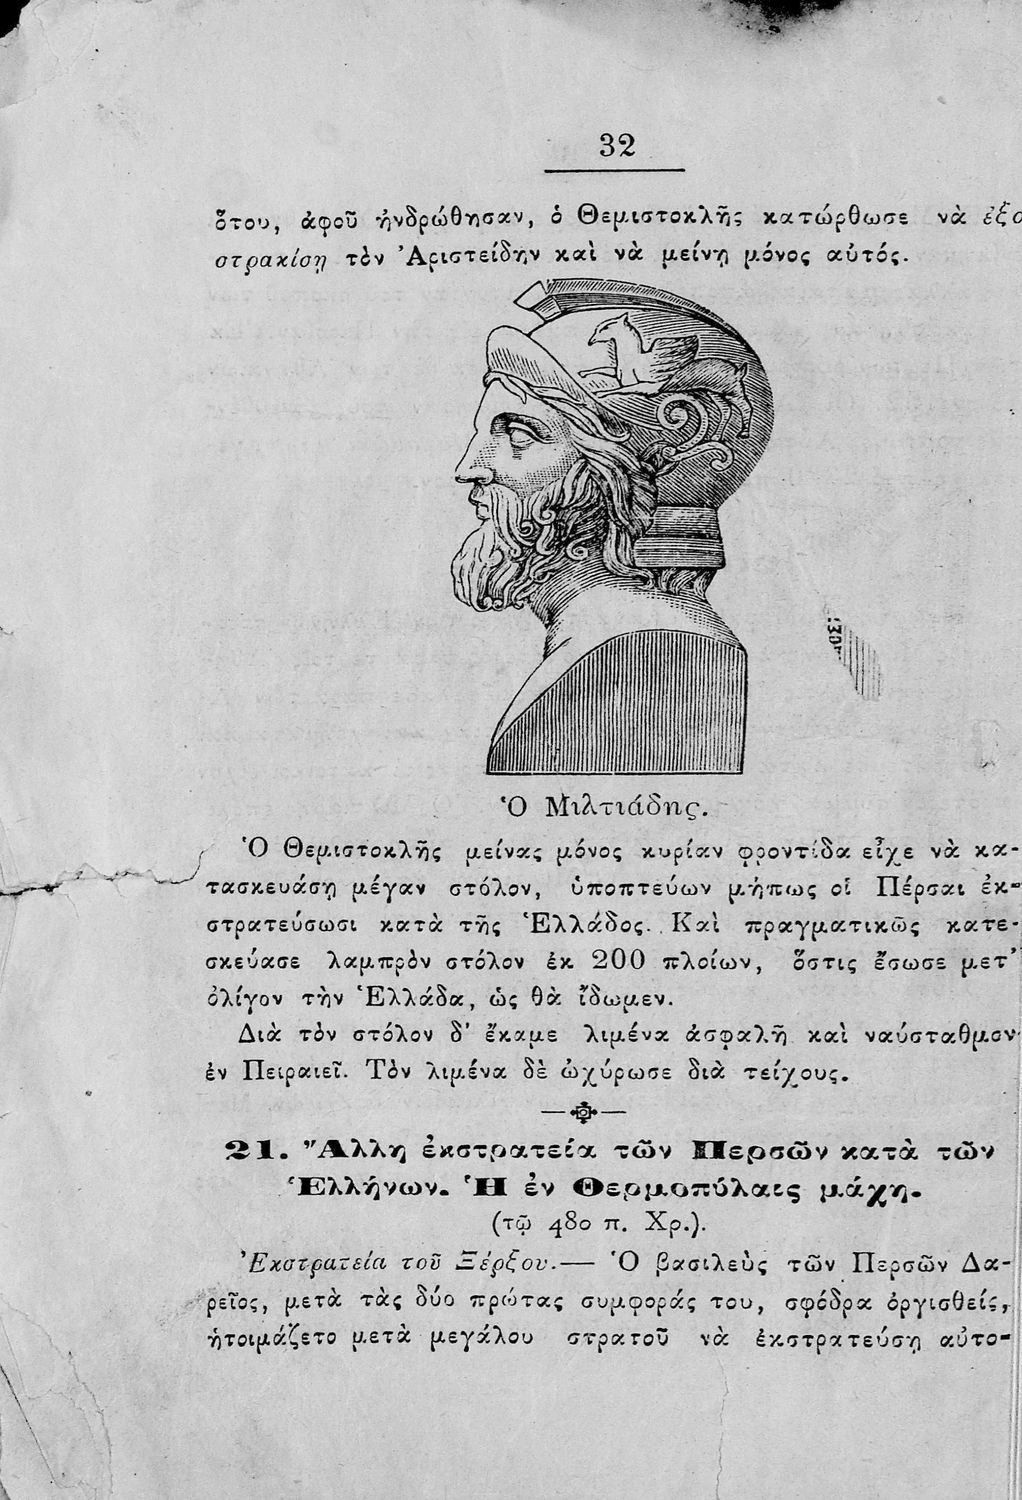 32
ὅτου, ἀφοῦ ἠνδρώθησαν, ὁ Θεμιστοκλῆς κατώρθωσε νὰ ἐξο
στρακίσῃ τὸν Ἀριστείδην καὶ νὰ μείνῃ μόνος αὐτός.
Ὁ Μιλτιάδης.
Ὁ Θεμιστοκλῆς μείνας μόνος κυρίαν φροντίδα εἶχε νὰ κα-
τασκευάσῃ μέγαν στόλον, ὑποπτεύων μήπως οἱ Πέρσαι ἐκ-
στρατεύσωσι κατὰ τῆς Ἑλλάδος. Καὶ πραγματικῶς κατε-
σκεύασε λαμπρὸν στόλον ἐκ 200 πλοίων, ὅστις ἔσωσε μετ'
ὀλίγον τὴν Ἑλλάδα, ὡς θὰ ἴδωμεν.
Διὰ τὸν στόλον δ' ἔκαμε λιμένα ἀσφαλῆ καὶ ναύσταθμον
ἐν Πειραιεῖ. Τὸν λιμένα δὲ ὠχύρωσε διὰ τείχους.
21. Ἄλλη ἐκστρατεία τῶν Περσῶν κατὰ τῶν
Ἑλλήνων. Ἡ ἐν Θερμοπύλαις μάχη.
(τῷ 480 π. Χρ.).
Ἐκστρατεία τοῦ Ξέρξου.— Ὁ βασιλεὺς τῶν Περσῶν Δα-
ρεῖος, μετὰ τὰς δύο πρώτας συμφοράς του, σφόδρα ὀργισθείς,
ἡτοιμάζετο μετὰ μεγάλου στρατοῦ νὰ ἐκστρατεύσῃ αὐτο-